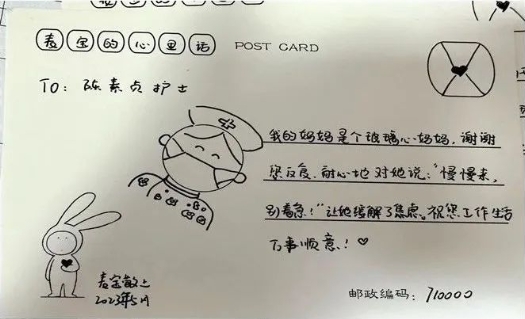 麦宝的心里话 POST CARD
TO: 陈素贞护士
我的妈妈是个玻璃心妈妈,谢谢
您反复、耐心地对她说:"慢慢来,
别着急!"让她缓解了焦虑。祝您工作生活
万事顺意!♡
麦宝敬上
2023年5月
邮政编码: 710000